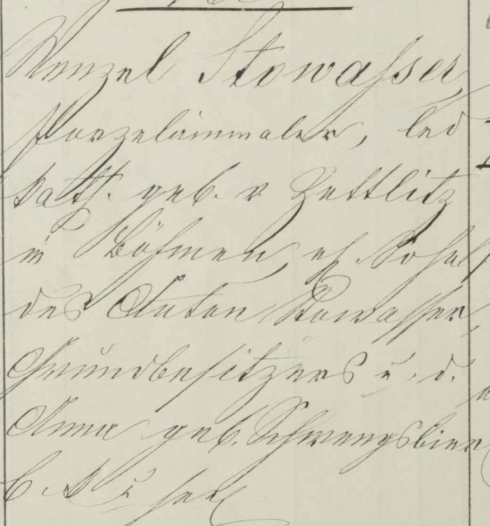 Wenzel Stowasser,
Porzelainmaler, led
kath. geb. v Zettlitz
in Böhmen, eh. Sohn
des Anton Stowasser,
Grundbesitzers u. d.
Anna geb.